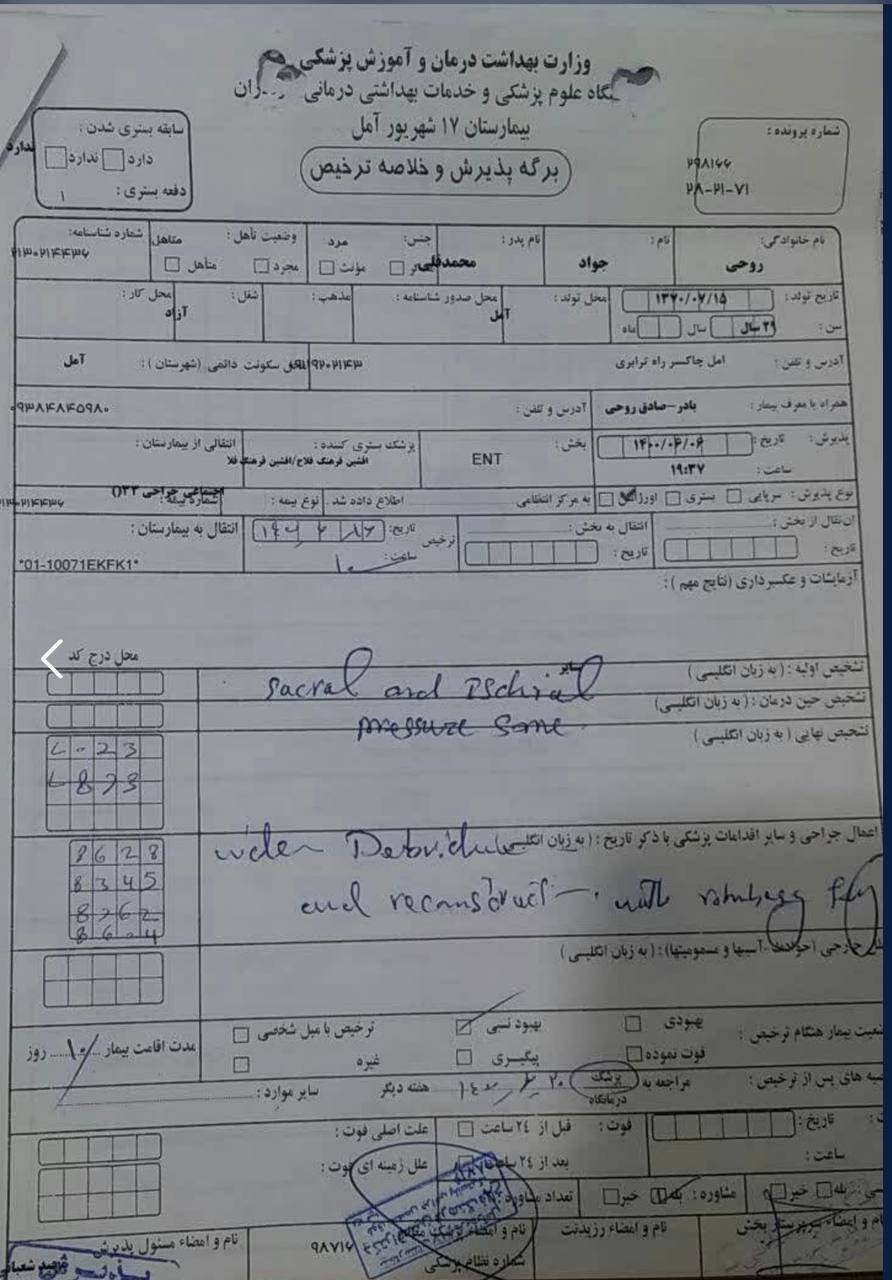 وزارت بهداشت درمان و آموزش پزشکی
گاه علوم پزشکی و خدمات بهداشتی درمانی ران
بیمارستان ۱۷ شهریور آمل
برگه پذیرش و خلاصه ترخیص
شماره پرونده :
۲۹۸۱۶۶
۲۸-۲۱-۷۱
سابقه بستری شدن :
دارد ندارد
ندارد
دفعه بستری : ۱
نام خانوادگی: روحی
نام : جواد
نام پدر : محمدقلی
جنس: مرد
مؤنث
وضعیت تأهل : متاهل
مجرد متأهل
شماره شناسنامه:
تاریخ تولد : ۱۳۷۰/۰۷/۱۵
محل تولد :
محل صدور شناسنامه : آمل
مذهب :
شغل : آزاد
محل کار :
سن : ۲۹ سال سال ماه
آدرس و تلفن : امل چاکسر راه ترابری
محل سکونت دائمی (شهرستان ) : آمل
همراه یا معرف بیمار : پادر-صادق روحی
آدرس و تلفن :
۰۹۳۸۴۸۴۵۹۸۰
پذیرش : تاریخ : ۱۴۰۰/۰۶/۰۶
ساعت : ۱۹:۳۷
بخش : ENT
پزشک بستری کننده :
افشین فرهنگ فلاح/افشین فرهنگ فلا
انتقالی از بیمارستان :
نوع پذیرش : سرپایی بستری اورژانس
به مرکز انتظامی اطلاع داده شد
نوع بیمه :
شماره بیمه :
انتقال از بخش :
تاریخ :
انتقال به بخش :
تاریخ :
ترخیص تاریخ:
ساعت : ۱۰
انتقال به بیمارستان :
*01-10071EKFK1*
آزمایشات و عکسبرداری (نتایج مهم ) :
محل درج کد
تشخیص اولیه : (به زبان انگلیسی )
سایر
sacral and Ischial
تشخیص حین درمان : ( به زبان انگلیسی)
pressure sore
تشخیص نهایی ( به زبان انگلیسی )
اعمال جراحی و سایر اقدامات پزشکی با ذکر تاریخ : ( به زبان انگلیسی)
8628
8345
and reconstruct with
علل خارجی (حوادث -آسیبها و مسمومیتها) : ( به زبان انگلیسی )
وضعیت بیمار هنگام ترخیص :
بهبودی بهبود نسبی ترخیص با میل شخصی
فوت نموده پیگیری غیره
مدت اقامت بیمار ۱۰ روز
توصیه های پس از ترخیص : مراجعه به پزشک
درمانگاه
هفته دیگر
سایر موارد :
تاریخ :
ساعت :
فوت : قبل از ۲۴ ساعت
بعد از ۲۴ ساعت
علت اصلی فوت :
علل زمینه ای فوت :
بله خیر
مشاوره : بله خیر
تعداد مشاوره :
نام و امضاء سرپرستار بخش
نام و امضاء رزیدنت
شماره نظام پزشکی
۹۸۷۱۶
نام و امضاء مسئول پذیرش